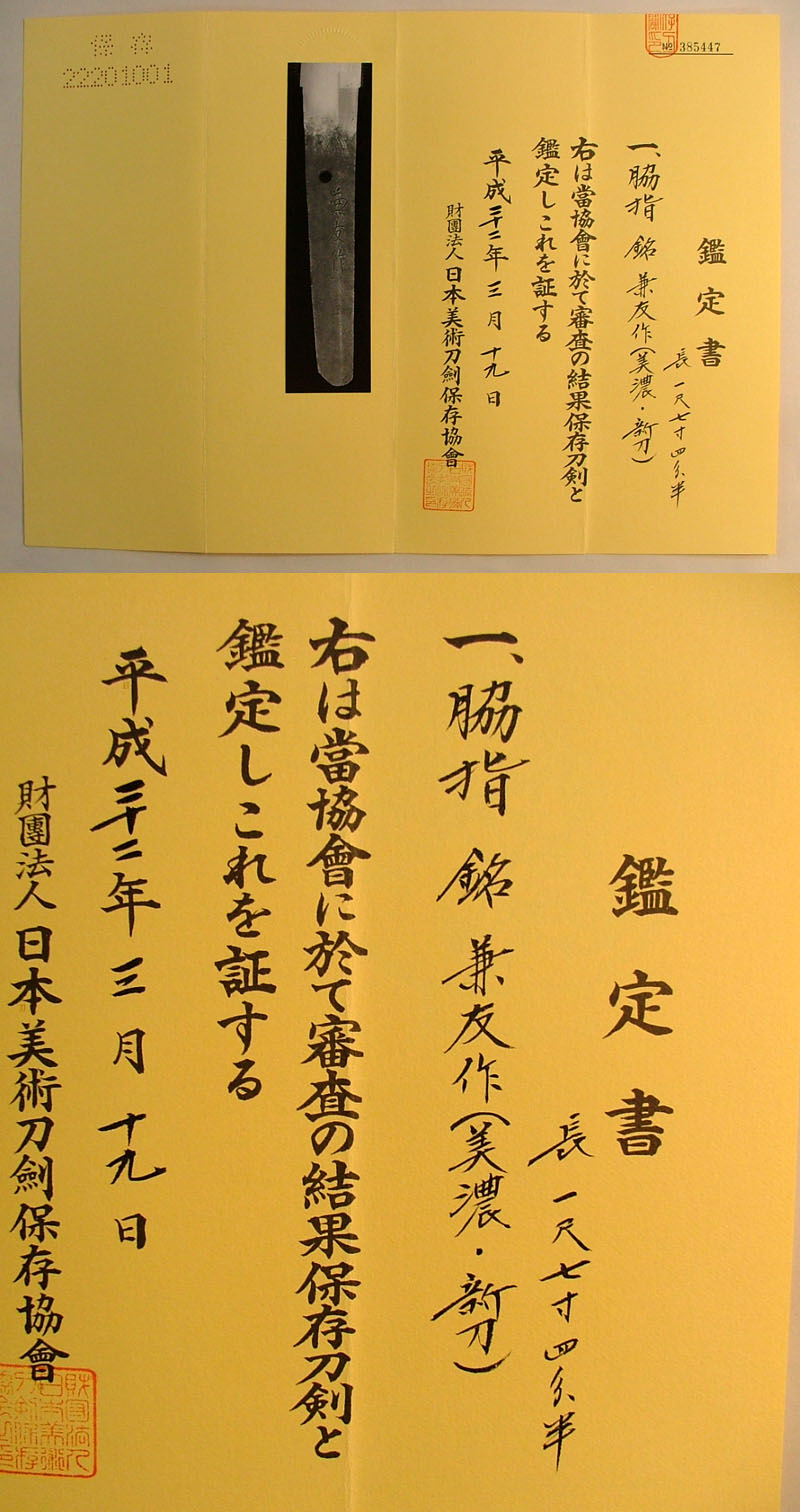 保存
22201001
№ 385447
鑑定書
長 一尺七寸四分半
一、脇指 銘 兼友作(美濃・新刀)
右は當協會に於て審査の結果保存刀剣と
鑑定しこれを証する
平成二十二年 三月 十九日
財團法人 日本美術刀劍保存協會
兼友作
鑑定書
長 一尺七寸四分半
一、脇指 銘 兼友作(美濃・新刀)
右は當協會に於て審査の結果保存刀剣と
鑑定しこれを証する
平成二十二年 三月 十九日
財團法人 日本美術刀劍保存協會